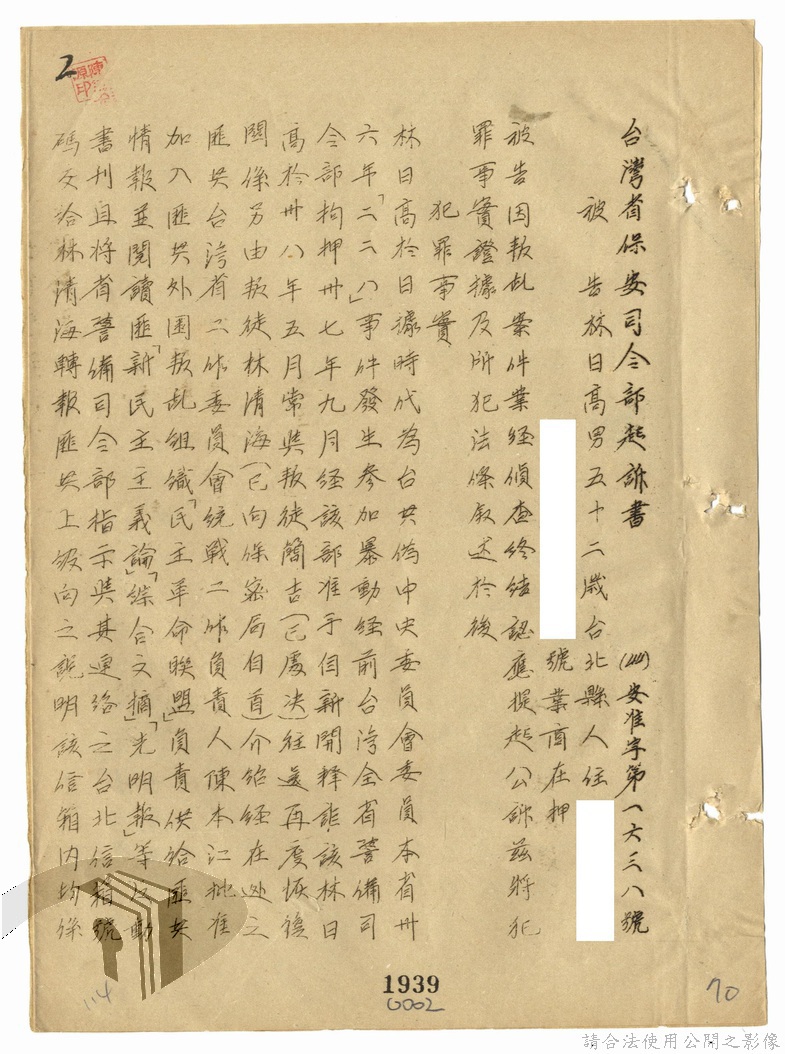 2
台灣省保安司令部起訴書
安准字第一六三八號
被告林日高男五十二歲台北縣人住
號業商在押
被告因叛乱案件業経偵查終結認應提起公訴茲將犯
罪事實證據及所犯法條叙述於後
犯罪事實
林日高於日據時代為台共偽中央委員會委員本省卅
六年「二二八」事件發生參加暴動経前台湾全省警備司
令部拘押卅七年九月経該部准予自新開釋詎該林日
高於卅八年五月常與叛徒簡吉(已處決)往還再度恢復
關係另由叛徒林清海(已向保密局自首)介紹経在逃之
匪共台湾省工作委員會統戰工作負責人陳本江批准
加入匪共外圍叛乱組織「民主革命聯盟」負責供給匪共
情報並閱讀匪「新民主主義論」「綜合文摘」「光明報」等反動
書刊且將省警備司令部指示與其連絡之台北信箱號
碼交給林清海轉報匪共上級向之說明該信箱內均係
1939
0002
114
70
請合法使用公開之影像